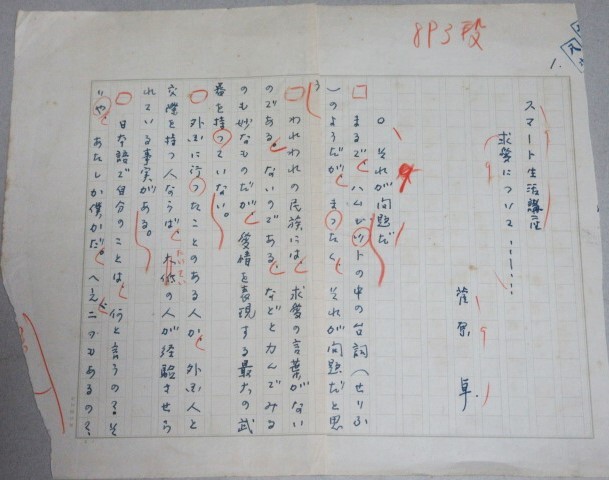 8P3段
1.
スマート生活講座
求愛について………
菅原 卓
○ それが問題だ
まるで ハムレットの中の台詞(せりふ
)のようだが まったく それが問題だと思
う
われわれの民族には 求愛の言葉がない
のである。ないのである などと力んでみる
のも妙なものだが 愛情を表現する最大の武
器を持っていない。
外国に行ったことのある人か 外国人と
交際を持つ人ならば 大低の人が経験させら
れている事実がある。
日本語で自分のことは 何と言うのか。そ
りや あたしか僕かだ。へえ二つもあるのか。